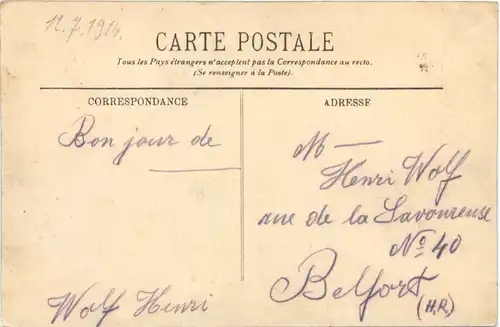 12.7.1914.
CARTE POSTALE
Tous les Pays étrangers n'acceptent pas la Correspondance au recto.
(Se renseigner à la Poste).
CORRESPONDANCE
Bon jour de
Wolf Henri
ADRESSE
M
Henri Wolf
rue de la Savoureuse
No 40
Belfort
(H.R.)